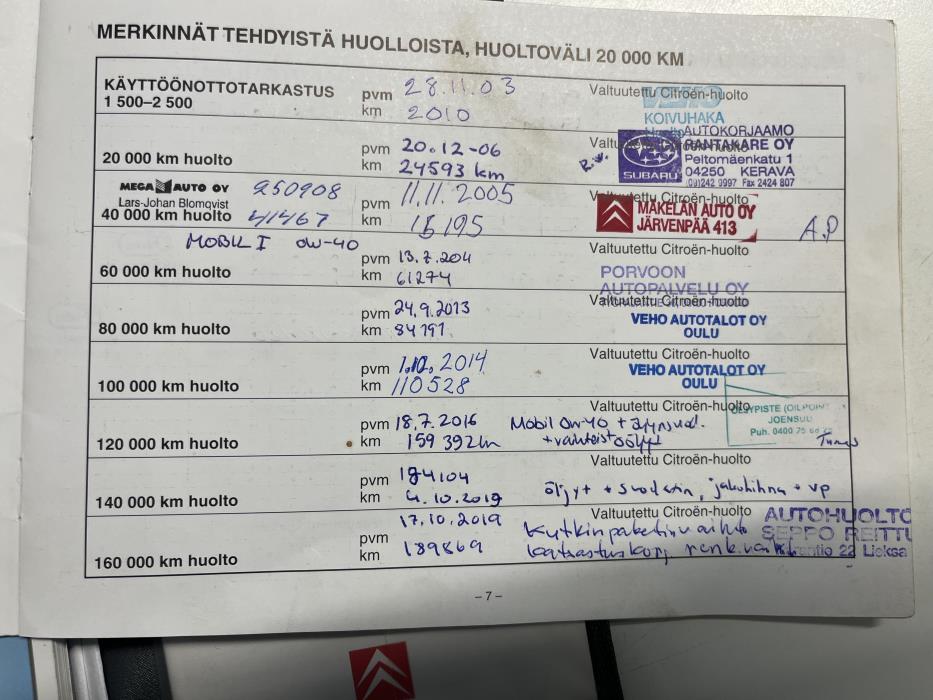 MERKINNÄT TEHDYISTÄ HUOLLOISTA, HUOLTOVÄLI 20 000 KM
KÄYTTÖÖNOTTOTARKASTUS
1 500–2 500
pvm 28.11.03
km 2010
Valtuutettu Citroën-huolto
VEHO
KOIVUHAKA
20 000 km huolto
pvm 20.12-06
km 24593 km
Valtuutettu Citroën-huolto
SUBARU
AUTOKORJAAMO
RANTAKARE OY
Peltomäenkatu 1
04250 KERAVA
(09)242 9997 Fax 2424 807
MEGA AUTO OY
Lars-Johan Blomqvist
250908
40 000 km huolto
41467
pvm 11.11.2005
km 16195
Valtuutettu Citroën-huolto
MÄKELÄN AUTO OY
JÄRVENPÄÄ 413
A.P
MOBIL I 0W-40
60 000 km huolto
pvm 13.7.2011
km 61274
Valtuutettu Citroën-huolto
PORVOON
AUTOPALVELU OY
80 000 km huolto
pvm 24.9.2013
km 84191
Valtuutettu Citroën-huolto
VEHO AUTOTALOT OY
OULU
100 000 km huolto
pvm 1.10.2014
km 110528
Valtuutettu Citroën-huolto
VEHO AUTOTALOT OY
OULU
120 000 km huolto
pvm 18.7.2016
km 159 392 km
Valtuutettu Citroën-huolto
Mobil 0w-40 +
ÖLJYPISTE (OILPOINT
JOENSUU
Puh. 0400 75
140 000 km huolto
pvm 184104
km 4.10.2019
Valtuutettu Citroën-huolto
öljyt + suodatin, jakohihna + vp
160 000 km huolto
17.10.2019
pvm
km 189869
Valtuutettu Citroën-huolto
Kytkinpaketin vaihto
katsastuskorj.
AUTOHUOLTO
SEPPO REITTU
22 Lieksa
– 7 –